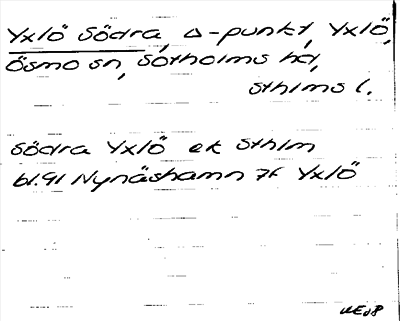 Yxlö Södra, Δ-punkt, Yxlö,
Ösmo sn, Sotholms hd,
Sthlms l.
Södra Yxlö ek Sthlm
bl.91 Nynäshamn 7f Yxlö